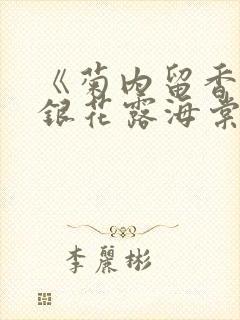 《菊内留香
銀花露海棠
李麗彬